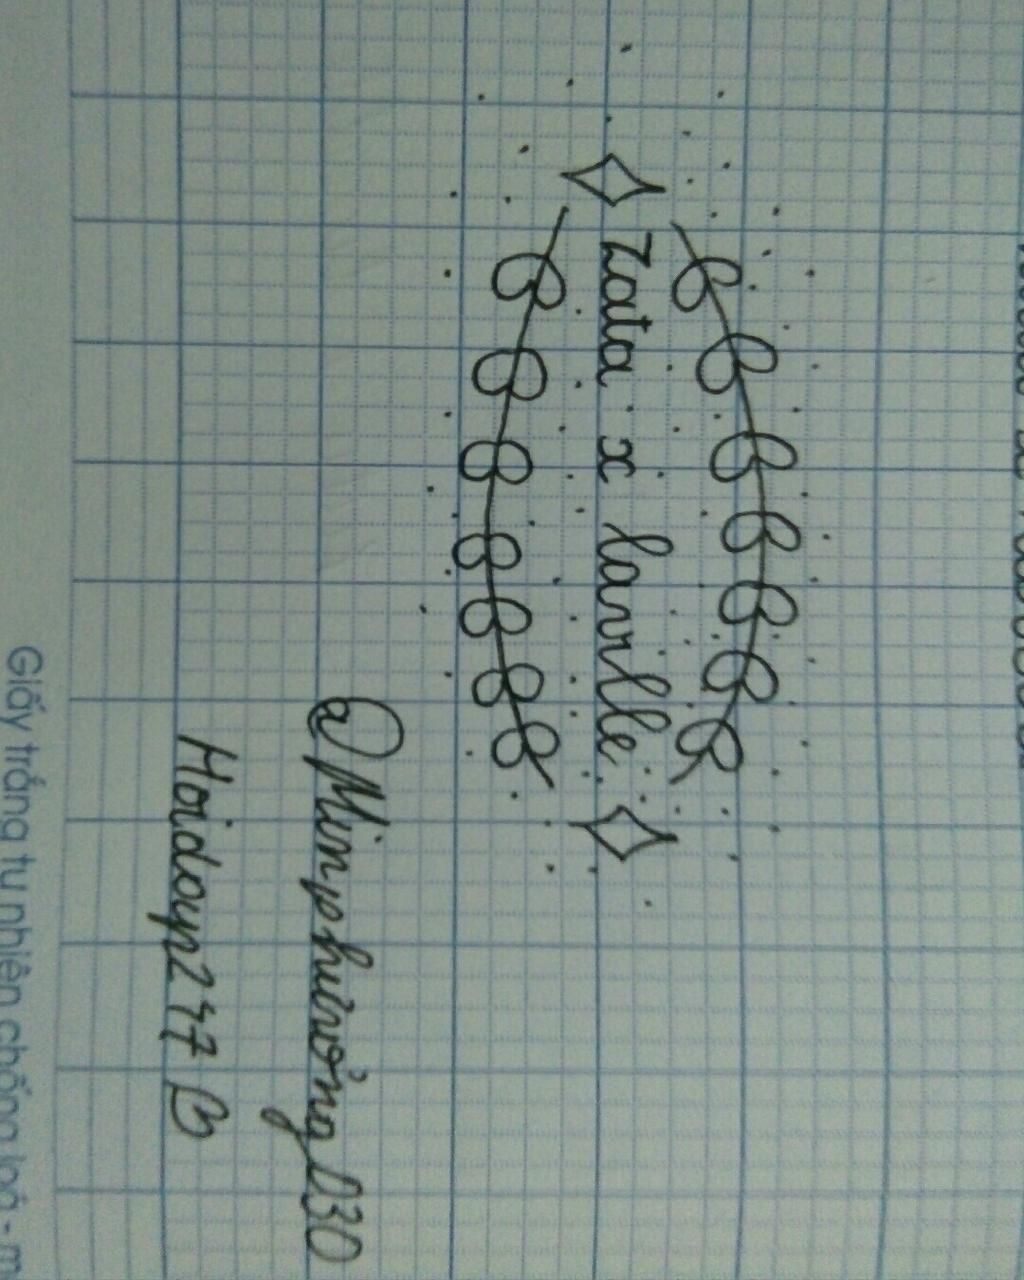 Zata x lavile
@Minphương030
Hoidayn247
Giấy trắng tự nhiên chống loá - m